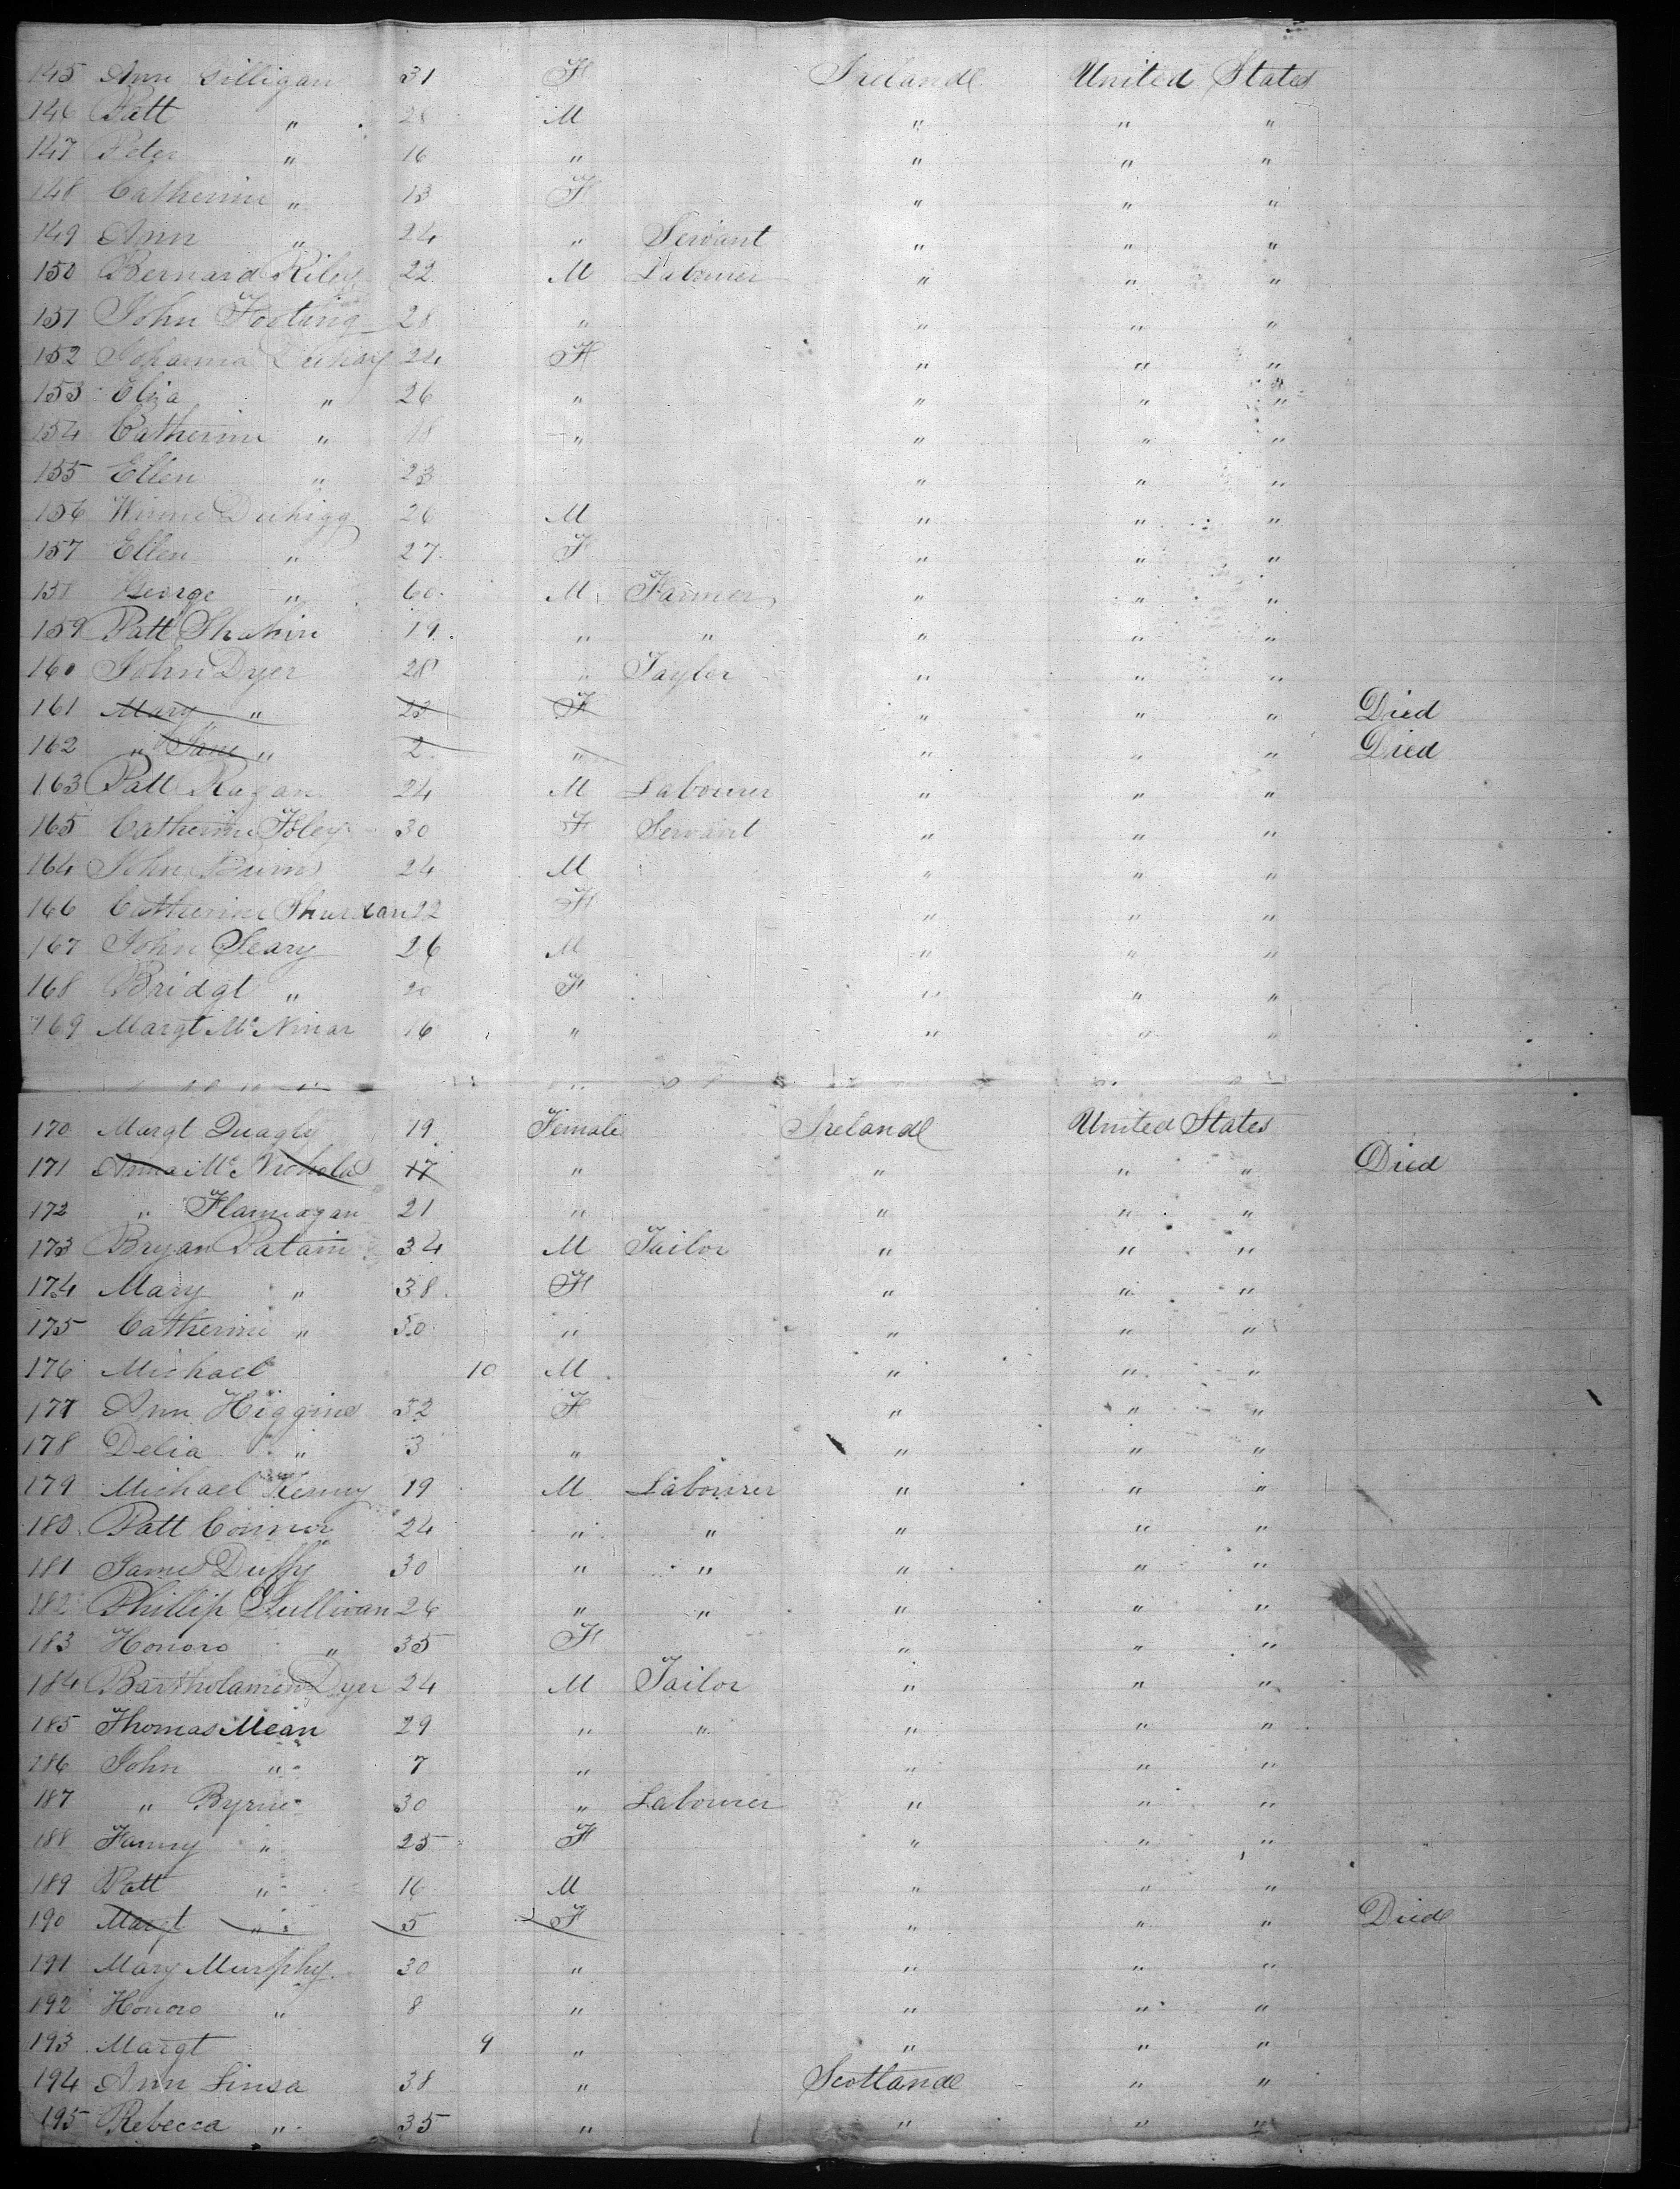 145 Ann Gilligan 31 F Ireland United States
146 Patt " 28 M " " "
147 Peter " 16 " " " "
148 Catherine " 13 F " " "
149 Ann " 24 " Servant " " "
150 Bernard Riley 22 M Labourer " " "
151 John Footing 28 " " " "
152 Johanna 24 F " " "
153 Eliza " 26 " " " "
154 Catherine " 18 " " " "
155 Ellen " 23 " " "
156 Winne Duhigg 26 M " " "
157 Ellen " 27 F " " "
158 George " 60 M Farmer " " "
159 Patt 19 " " " " "
160 John Dyer 28 " Taylor " " "
161 Mary " 23 F " " " Died
162 " Jane " 2 " " " " Died
163 Patt Ragan 24 M Labourer " " "
165 Catherine Foley 30 F Servant " " "
164 John Burns 24 M " " "
166 Catherine Shurdan 22 F " " "
167 John Seary 26 M " " "
168 Bridgt " 20 F " " "
169 Margt Mc Ninar 16 " " " "
170 Margt Quagly 19 Female Ireland United States
171 Anna Mc Nicholas 17 " " " " Died
172 " Flannagan 21 " " " "
173 Bryan Patain 34 M Tailor " " "
174 Mary " 38 F " " "
175 Catherine " 50 " " " "
176 Michael 10 M " " "
177 Ann Higgins 32 F " " "
178 Delia " 3 " " " "
179 Michael Kenny 19 M Labourer " " "
180 Patt Connor 24 " " " " "
181 James Duffy 30 " " " " "
182 Phillip Sullivan 26 " " " " "
183 Honoro " 35 F " " "
184 Bartholamew Dyer 24 M Tailor " " "
185 Thomas Mean 29 " " " " "
186 John " 7 " " " "
187 " Byrne 30 " Labourer " " "
188 Fanny " 25 F " " "
189 Patt " 16 M " " "
190 Margt " 5 F " " " Died
191 Mary Murphy 30 " " " "
192 Honoro " 8 " " " "
193 Margt 9 " " " "
194 Ann Linsa 38 " Scotland " "
195 Rebecca " 35 " " " "